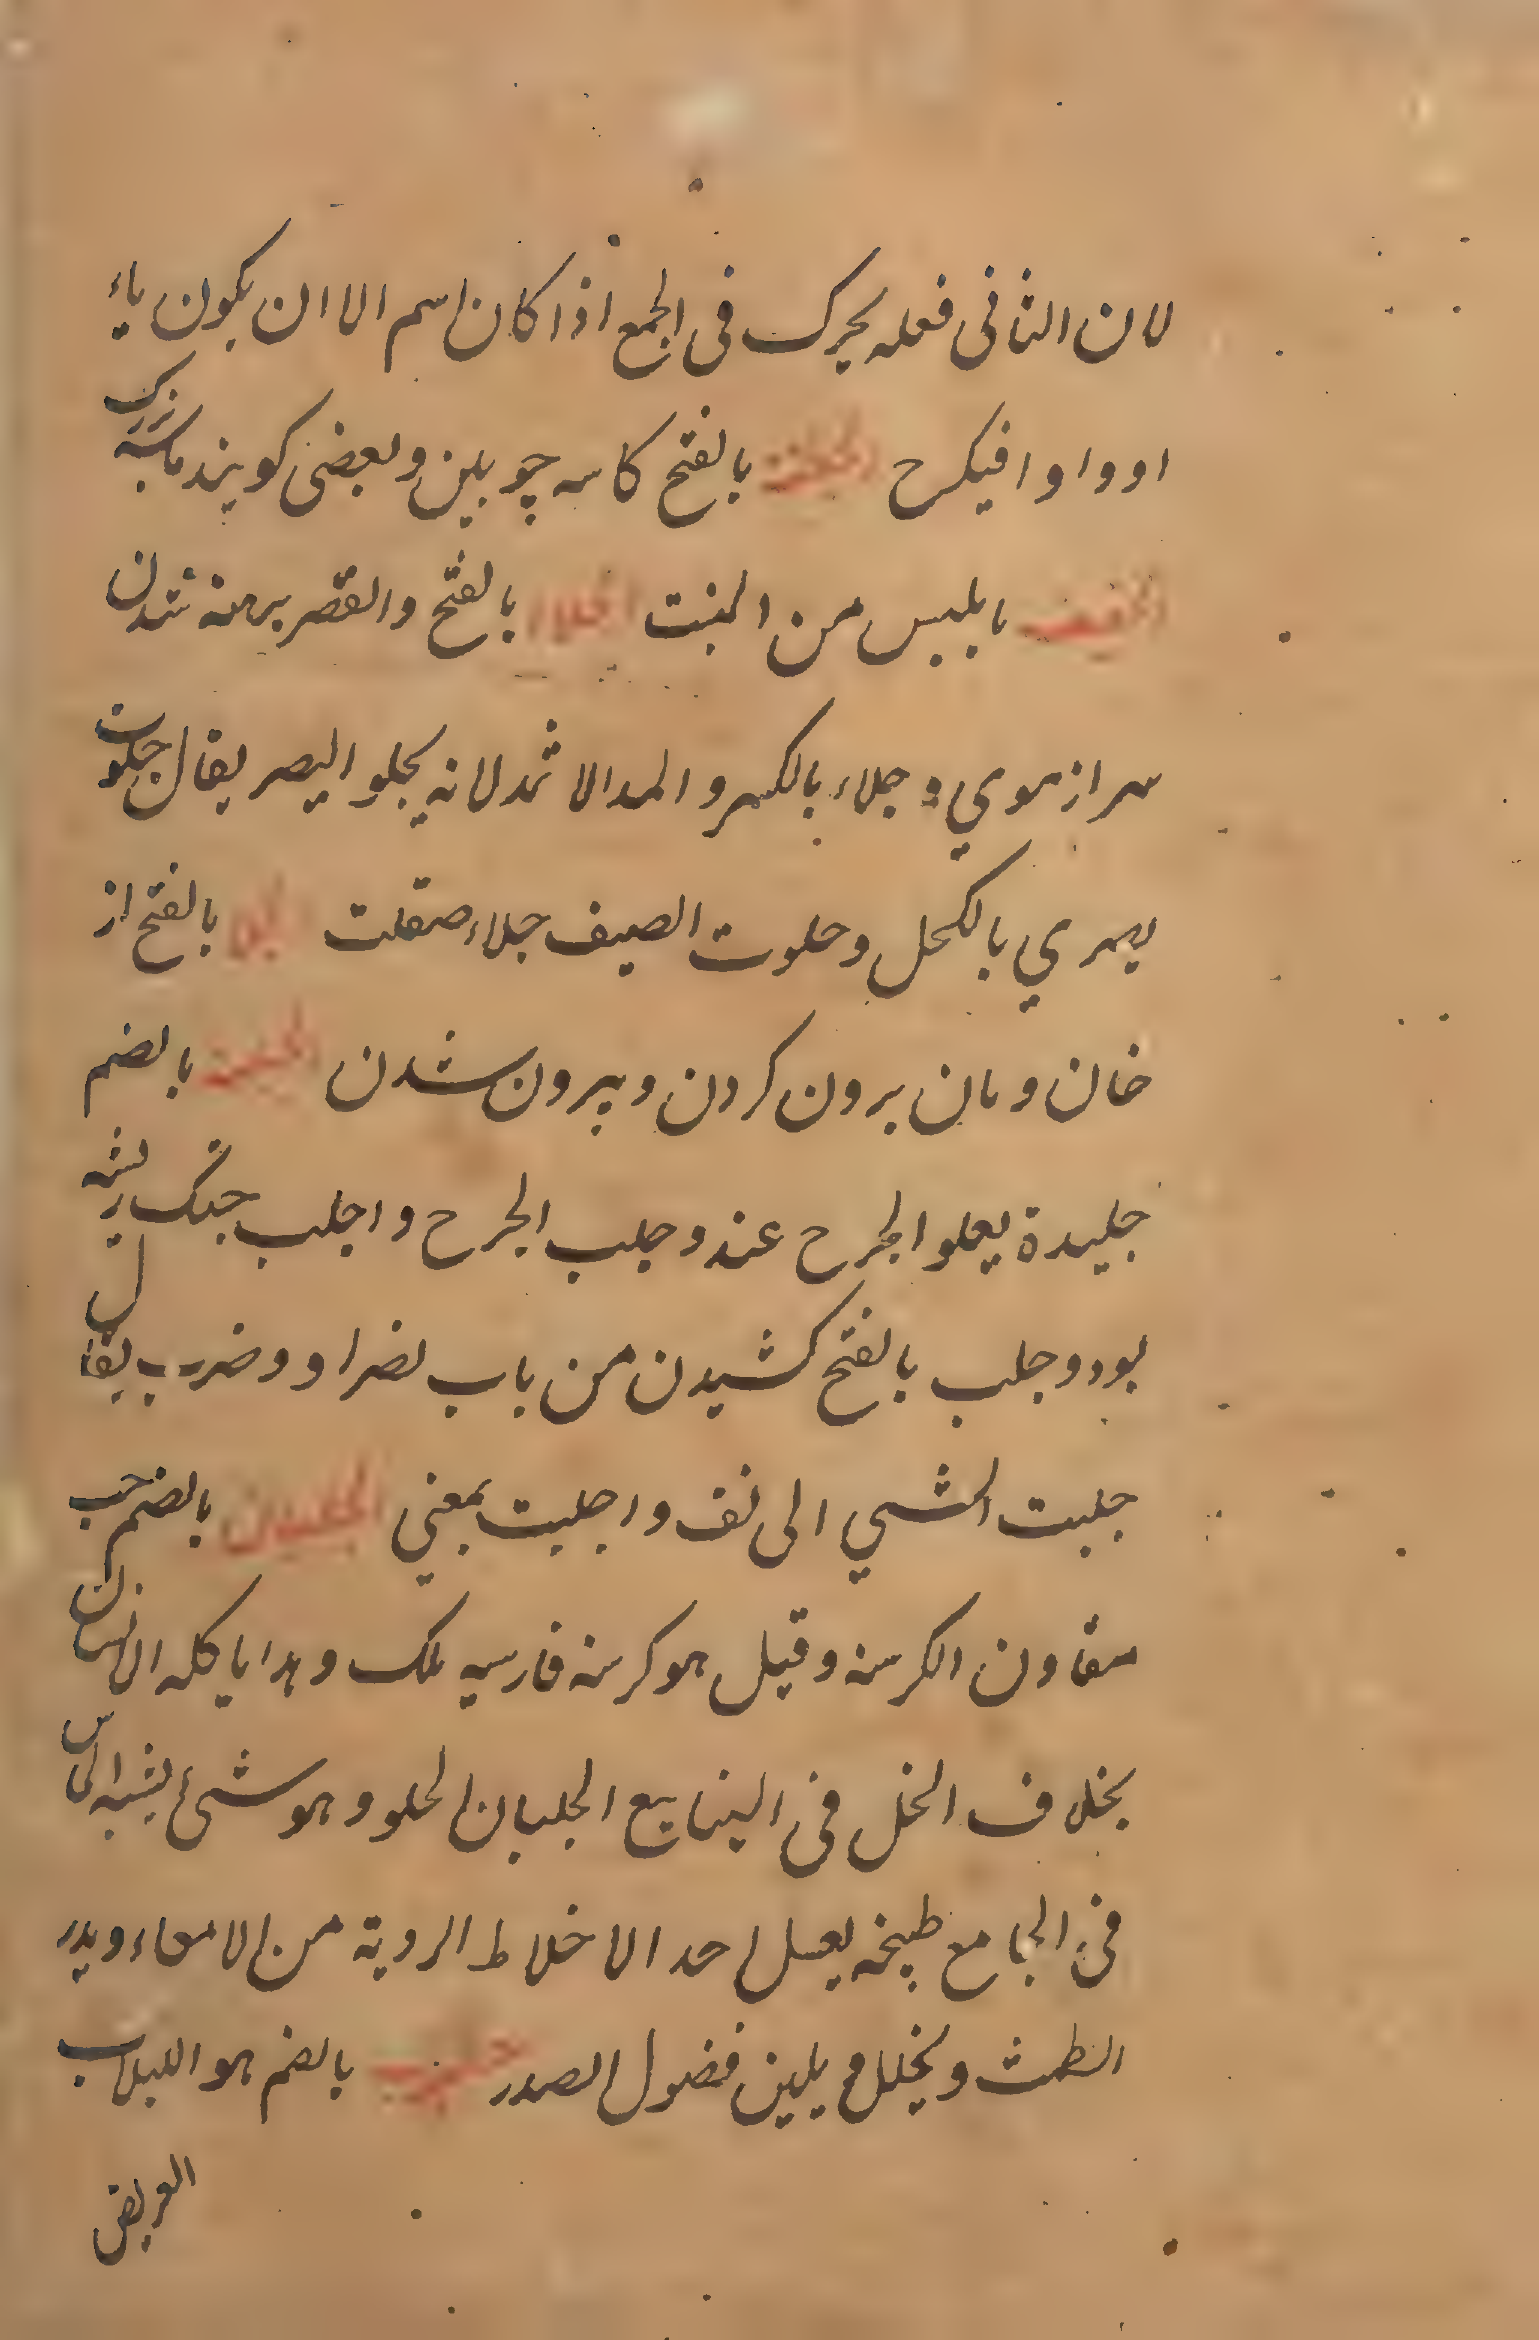 لان الثانی فعله یحرک فی الجمع اذا کان اسم الا ان یکون یاء
او واوا فیکرح بالفتح کاسه چوبین و بعضی کویند کاسه بزرک
ما یلبس من المنت الجلاء بالفتح والقصر برهنه شدن
سر از موی و جلاء بالکسر و المد الاثمد لانه یجلو البصر یقال جلوت
بصری بالکحل و جلوت الصیف جلاء صقلت بالفتح از
خان و مان برون کردن و بیرون شدن بالضم
جلیدة یعلو الجرح عند و جلب الجرح و اجلب خشک ریشه
بود و جلب بالفتح کشیدن من باب نصر او و ضرب یقال
جلبت الشیی الی نفـ و اجلبت بمعنی الجلبان بالضم حب
مقاون الکرسنه و قیل هو کرسنه فارسیه ملک و هذا یاکله الانسان
بخلاف الخل فی الینابیع الجلبان الحلو و هو شیئ یشبه الماس
فی الجامع طبیخه یعسل احد الاخلاط الردیة من الامعاء و یدر
الطمث و یحلل و یلین فضول الصدر بالضم هو اللبلاب
العریض